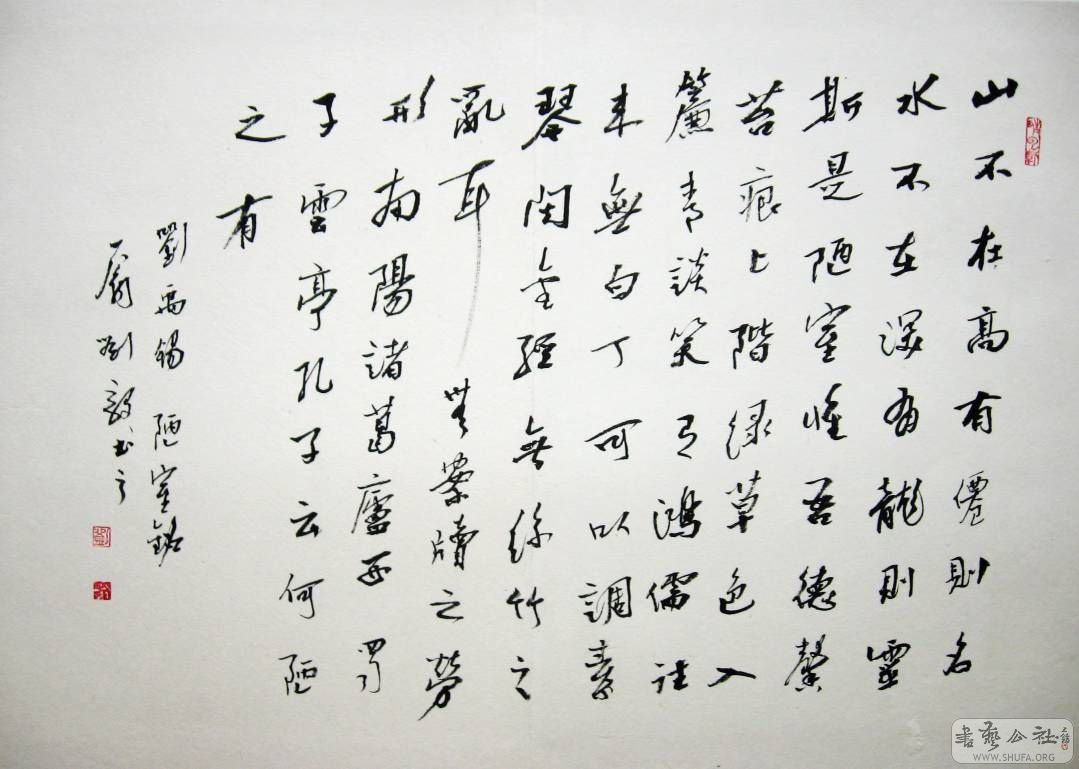 山不在高有僊則名
水不在深有龍則靈
斯是陋室惟吾德馨
苔痕上階綠草色入
簾青談笑有鴻儒往
来無白丁可以調素
琴閱金經無絲竹之
亂耳無案牘之勞
形南陽諸葛廬西蜀
子雲亭孔子云何陋
之有
劉禹錫 陋室銘
劉毅书之
書藝公社
WWW.SHUFA.ORG